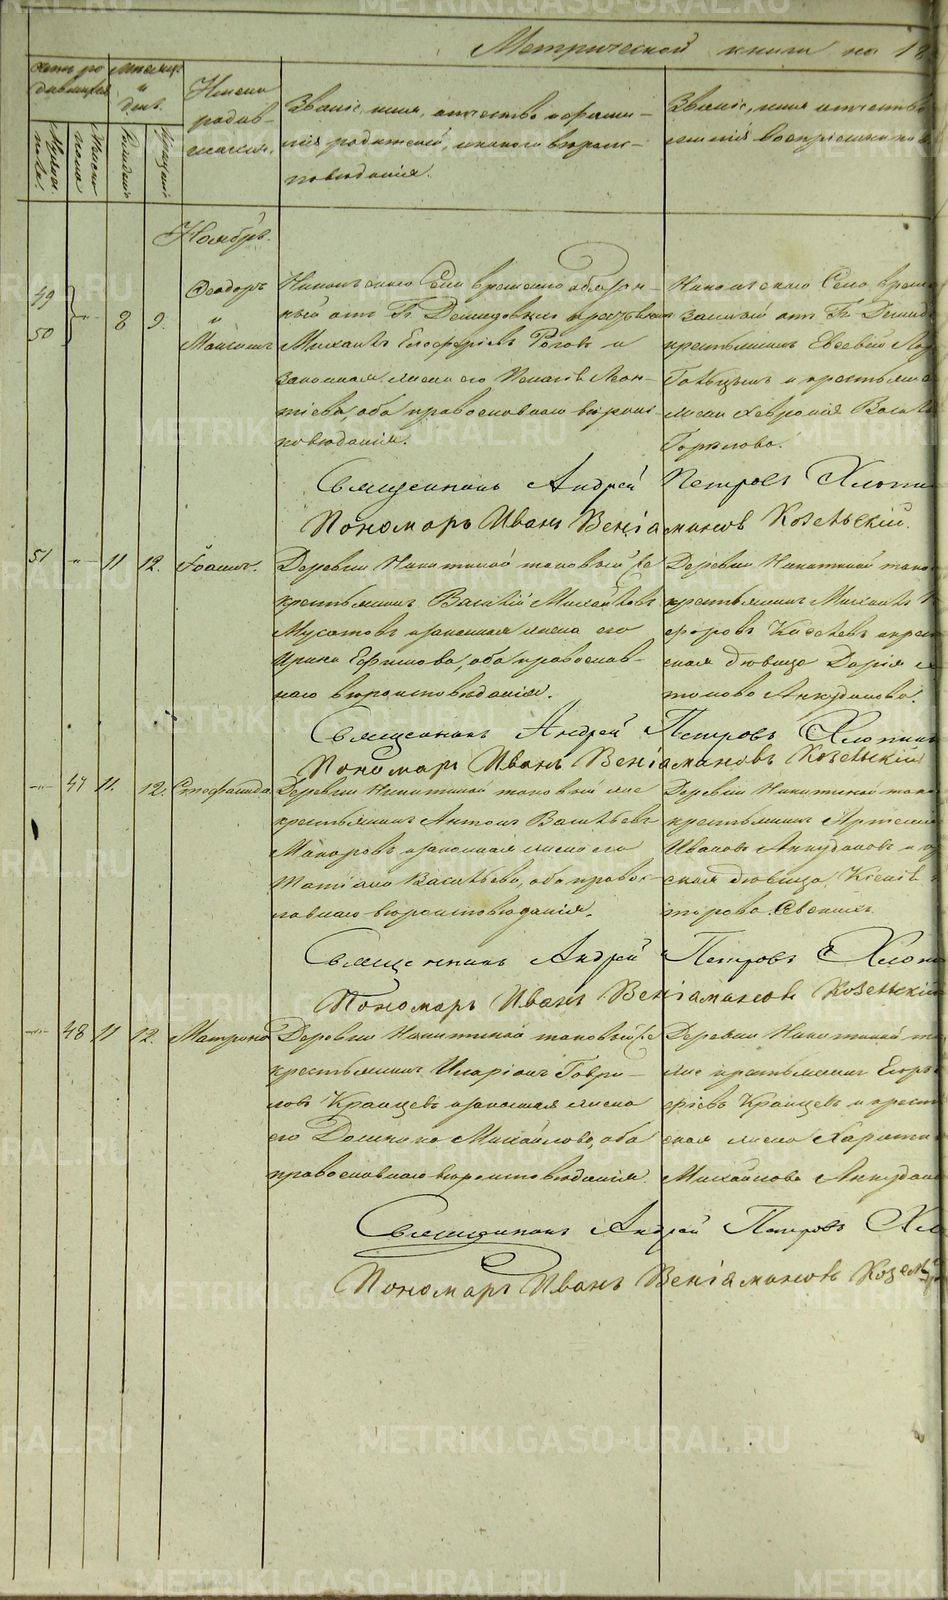 Метрической книги на 18
Счетъ родившихся
Мѣсяцъ и день.
Имена родившихся.
Званіе, имя, отчество и фамилія родителей, и какого вѣроисповѣданія.
Званіе, имя, отчество
Мужеска пола.
Женска пола
Рожденія
Крещенія
Ноябрь.
49
50
8
9.
Ѳеодоръ
и
Максимъ
Никольскаго Села временно обязан-
ный отъ Г. Демидовыхъ крестьянинъ
Михаилъ Елеоферіевъ Роговъ и
законная жена его Пелагія Леон-
тіева, оба православнаго вѣроис-
повѣданія.
Никольскаго Села време
занный отъ Г. Демид
крестьянинъ Евсевій
и крестьянс
жена Хевронія Васил
Горнлова.
Священникъ Андрей Петровъ Хлопин
Пономарь Иванъ Веніаминовъ Козельскій.
51
11
12.
Іоаннъ.
Деревни Никитиной таковый же
крестьянинъ Василій Михайловъ
Мусатовъ и законная жена его
Ирина Ефимова, оба православ-
наго вѣроисповѣданія.
Деревни Никитиной тако
крестьянинъ Михаилъ
форовъ Киселевъ и крес
ская дѣвица Дарія
Анкудинова.
Священникъ Андрей Петровъ Хлопин
Пономарь Иванъ Веніаминовъ Козельскій
47
11.
12.
Синофалида.
Деревни Никитиной таковый же
крестьянинъ Антонъ Васильевъ
Макаровъ и законная жена его
Татіана Васильева, оба право-
славнаго вѣроисповѣданія.
Деревни Никитиной тако
крестьянинъ Артемій
Ивановъ Анкудиновъ и
ская дѣвица, Ксенія
трова
Священникъ Андрей Петровъ Хлопи
Пономарь Иванъ Веніаминовъ Козельскій
48
11
12.
Матрона
Деревни Никитиной таковый же
крестьянинъ Иларіонъ Гаври-
ловъ Кранцевъ и законная жена
его Домника Михайлова, оба
православнаго вѣроисповѣданія.
Деревни Никитиной т
же крестьянинъ Егоръ
фіевъ Кранцевъ и крест
ская жена Харитин
Михайлова Анкудино
Священникъ Андрей Петровъ Хло
Пономарь Иванъ Веніаминовъ Козель
METRIKI.GASO-URAL.RU